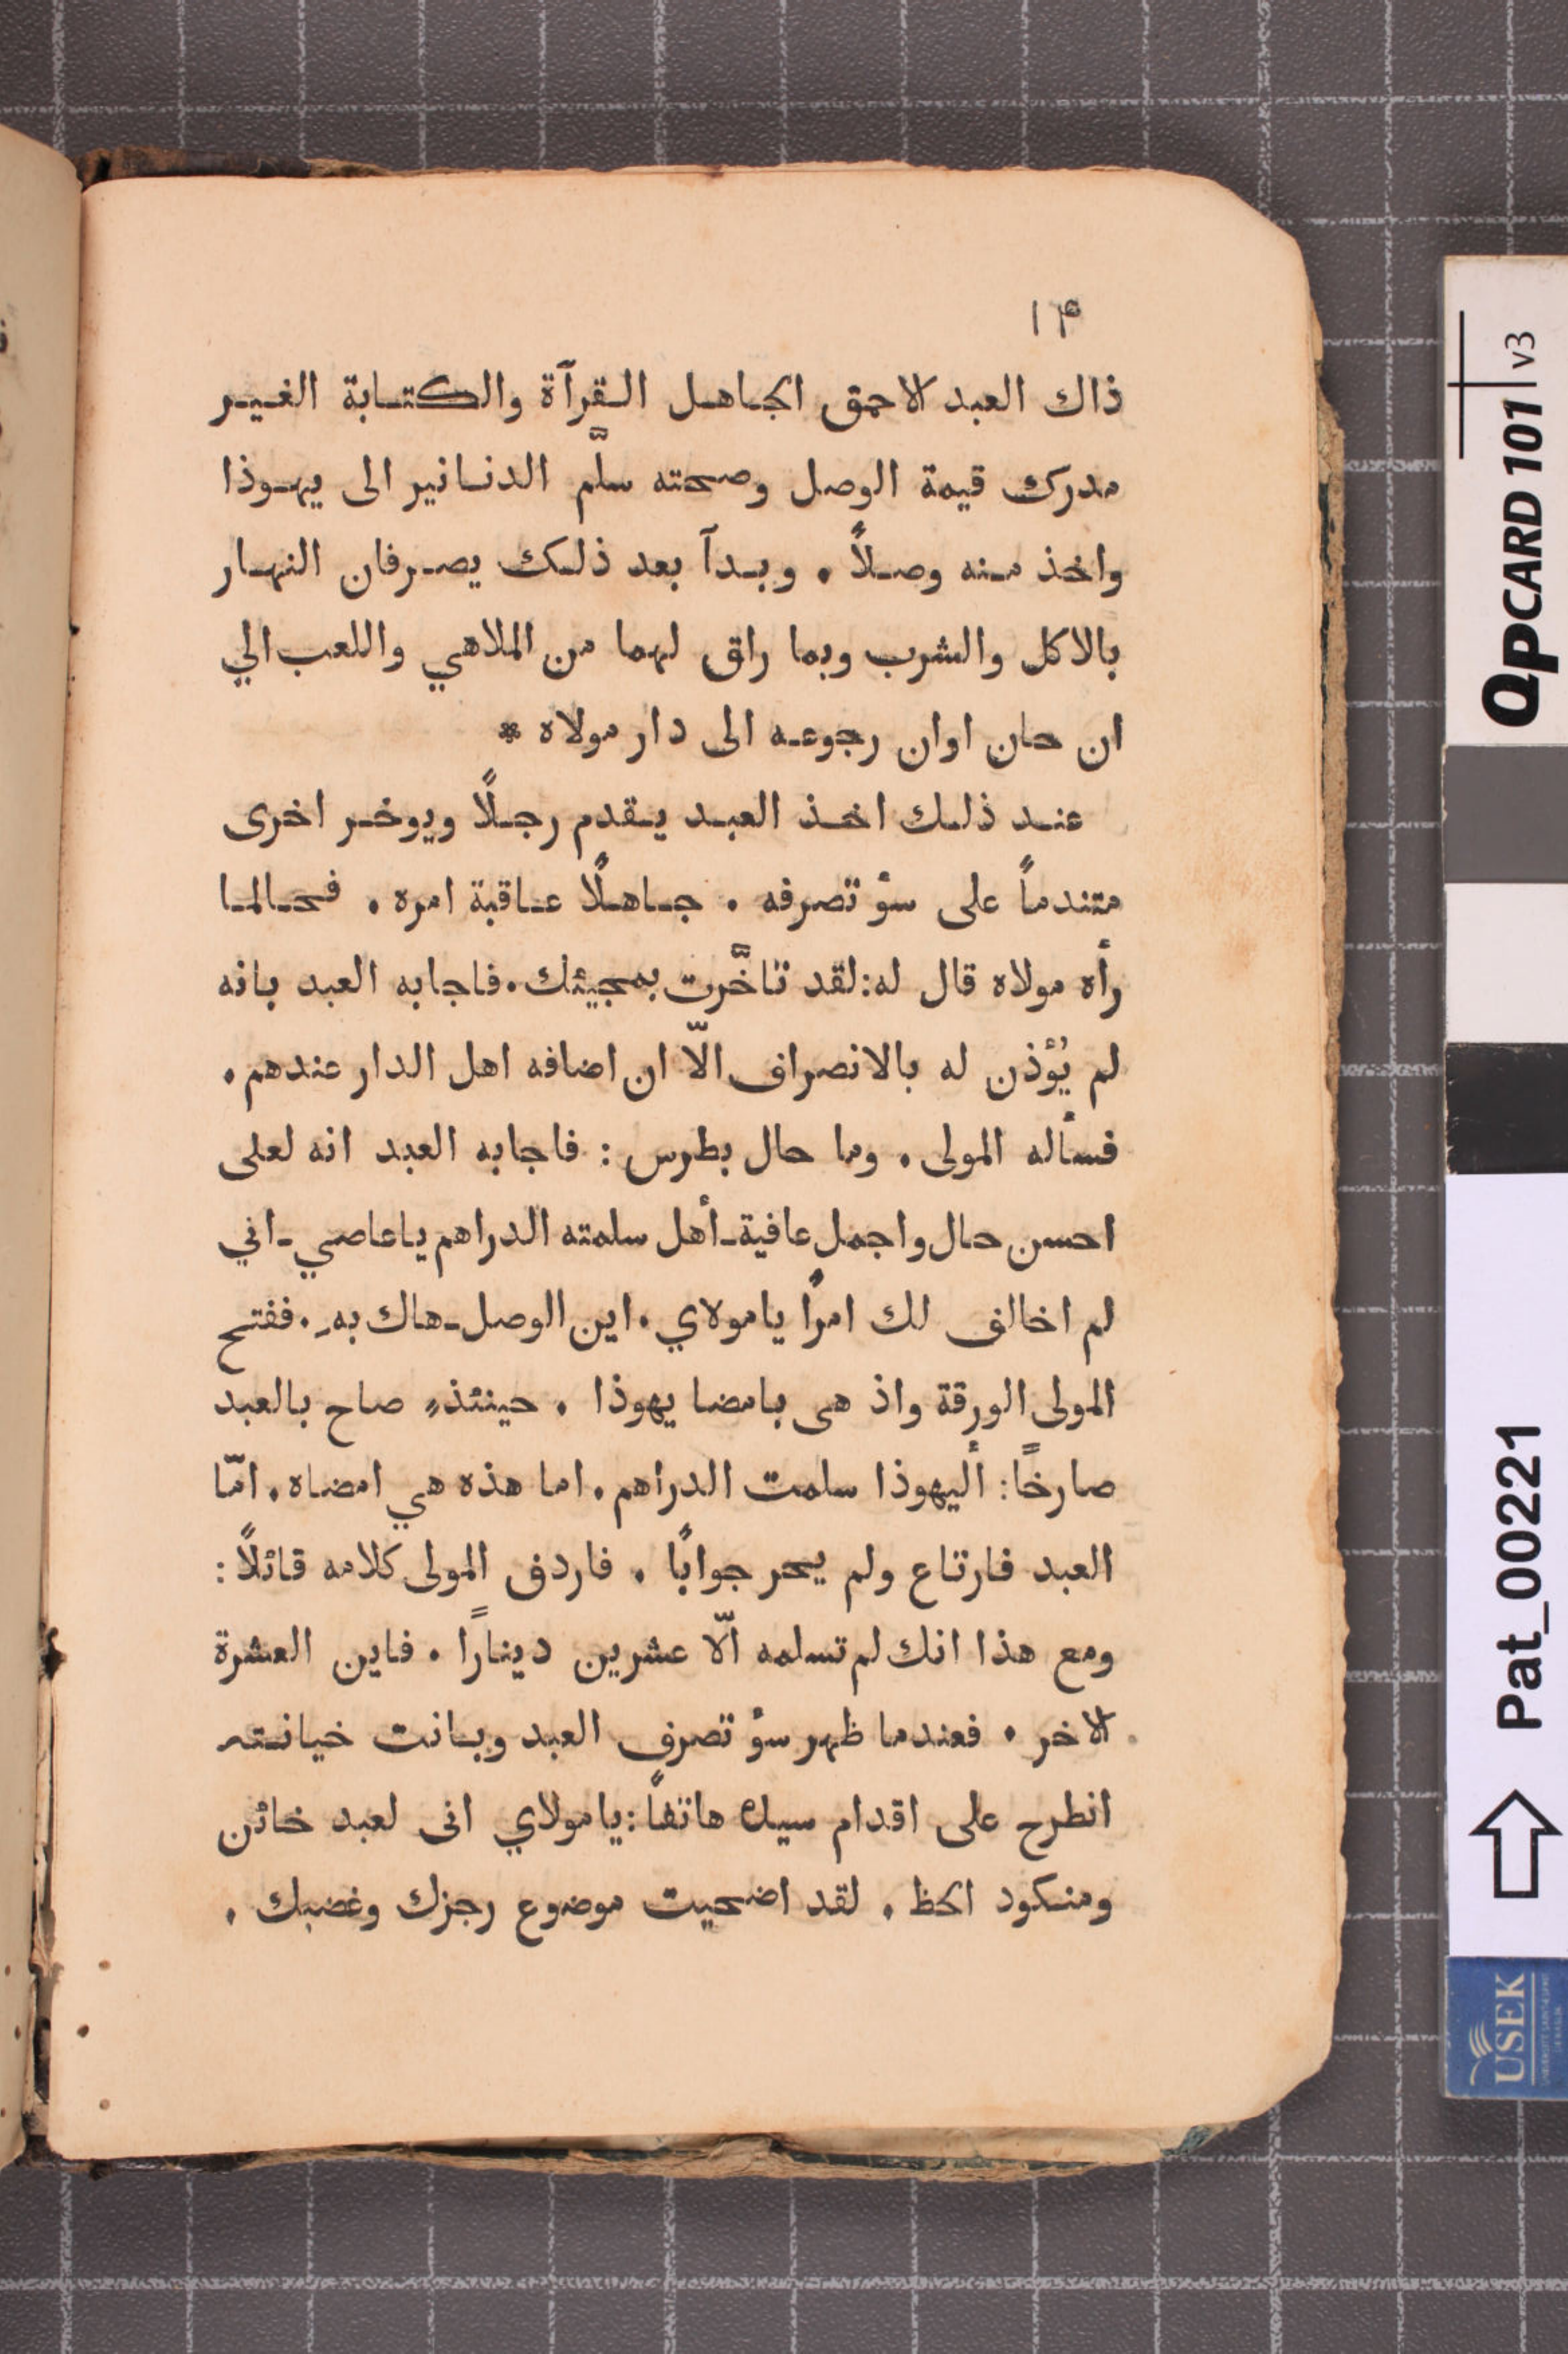 ١٣
ذاك العبد الاحمق الجاهل القرآة والكتابة الغير
مدرك قيمة الوصل وصحته سلّم الدنانير الى يهوذا
واخذ منه وصلاً . وبدآ بعد ذلك يصرفان النهار
بالاكل والشرب وبما راق لهما من الملاهي واللعب الي
ان حان اوان رجوعه الى دار مولاه *
عند ذلك اخذ العبد يقدم رجلًا ويوخر اخرى
متندماً على سؤ تصرفه . جاهلًا عاقبة امره . فحالما
رأه مولاه قال له: لقد تاخَّرت بمجيئك . فاجابه العبد بانه
لم يُؤذن له بالانصراف الّا ان اضافه اهل الدار عندهم .
فسأله المولى . وما حال بطرس : فاجابه العبد انه لعلى
احسن حال واجمل عافية ـ أهل سلمته الدراهم ياعاصي ـ اني
لم اخالف لك امرًا يا مولاي . اين الوصل ـ هاك به . ففتح
المولى الورقة واذ هى بامضا يهوذا . حينئذٍ صاح بالعبد
صارخًا : أليهوذا سلمت الدراهم . اما هذه هي امضاه . امّا
العبد فارتاع ولم يحر جوابًا . فاردف المولى كلامه قائلاً :
ومع هذا انك لم تسلمه الّا عشرين دينارًا . فاين العشرة
الاخر . فعندما ظهر سؤ تصرف العبد وبانت خيانته
انطرح على اقدام سيده هاتفاً : يا مولاي انى لعبد خائن
ومنكود الحظ . لقد اضحيت موضوع رجزك وغضبك .
QPCARD 101 v3
Pat_00221
USEK